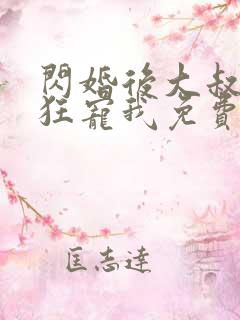 閃婚後大叔
狂寵我免費
匡志達